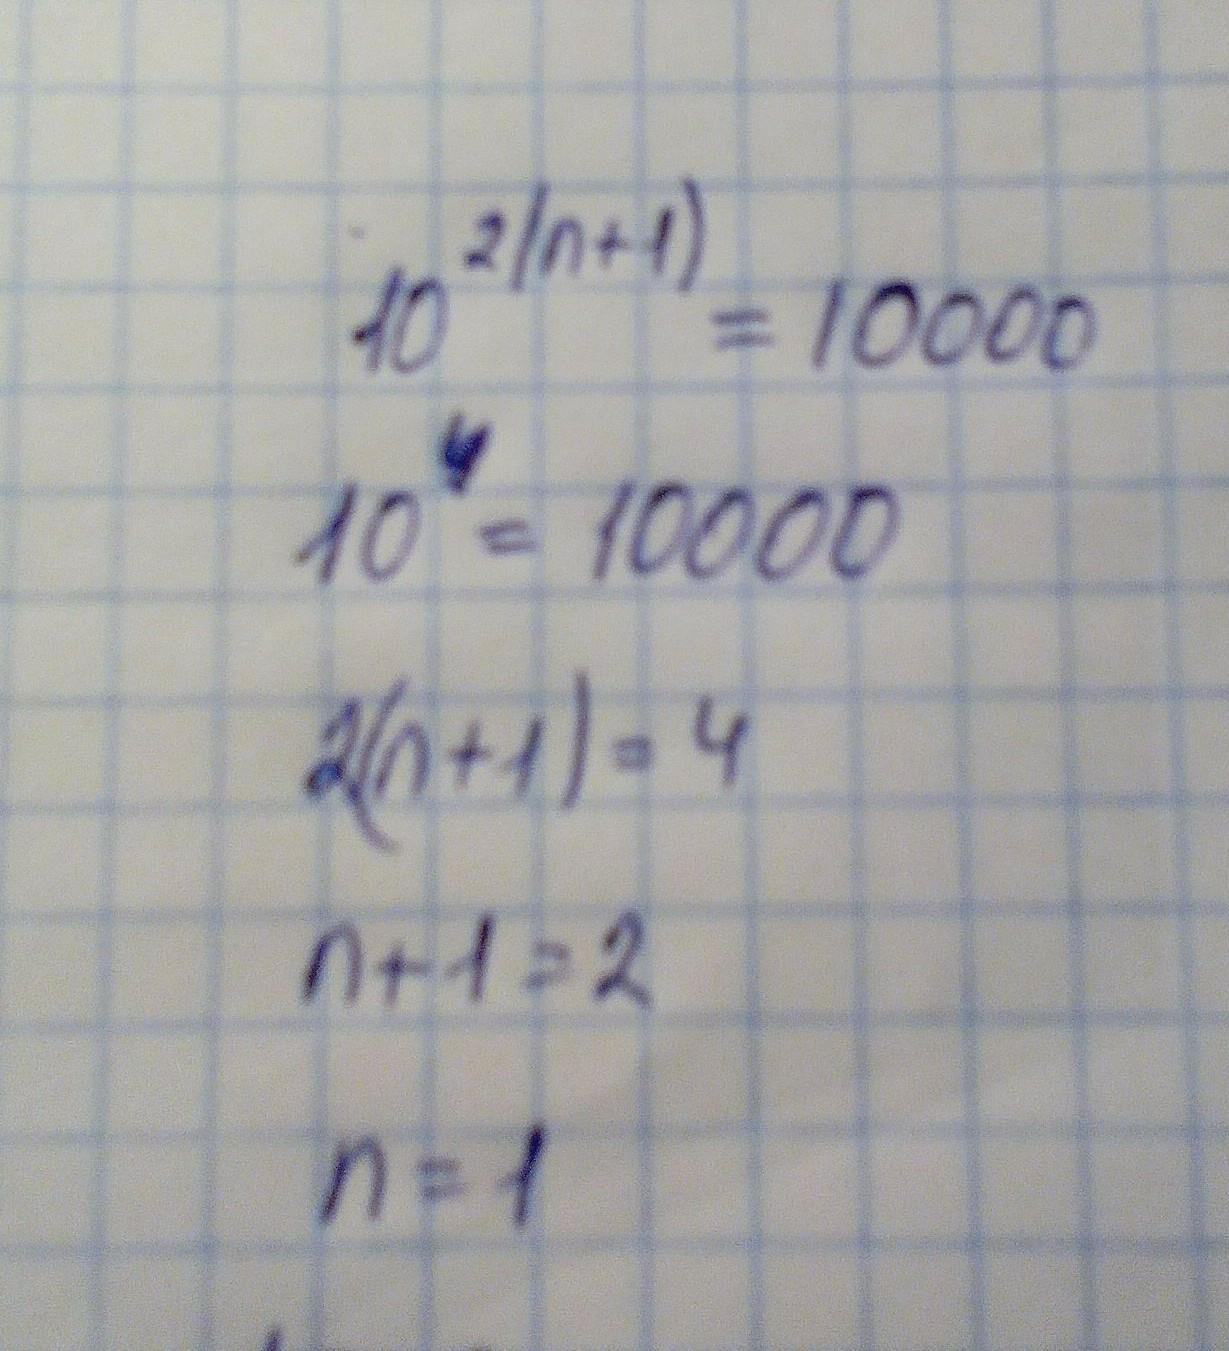 10^{2(n+1)} = 10000
10^4 = 10000
2(n+1) = 4
n+1=2
n=1